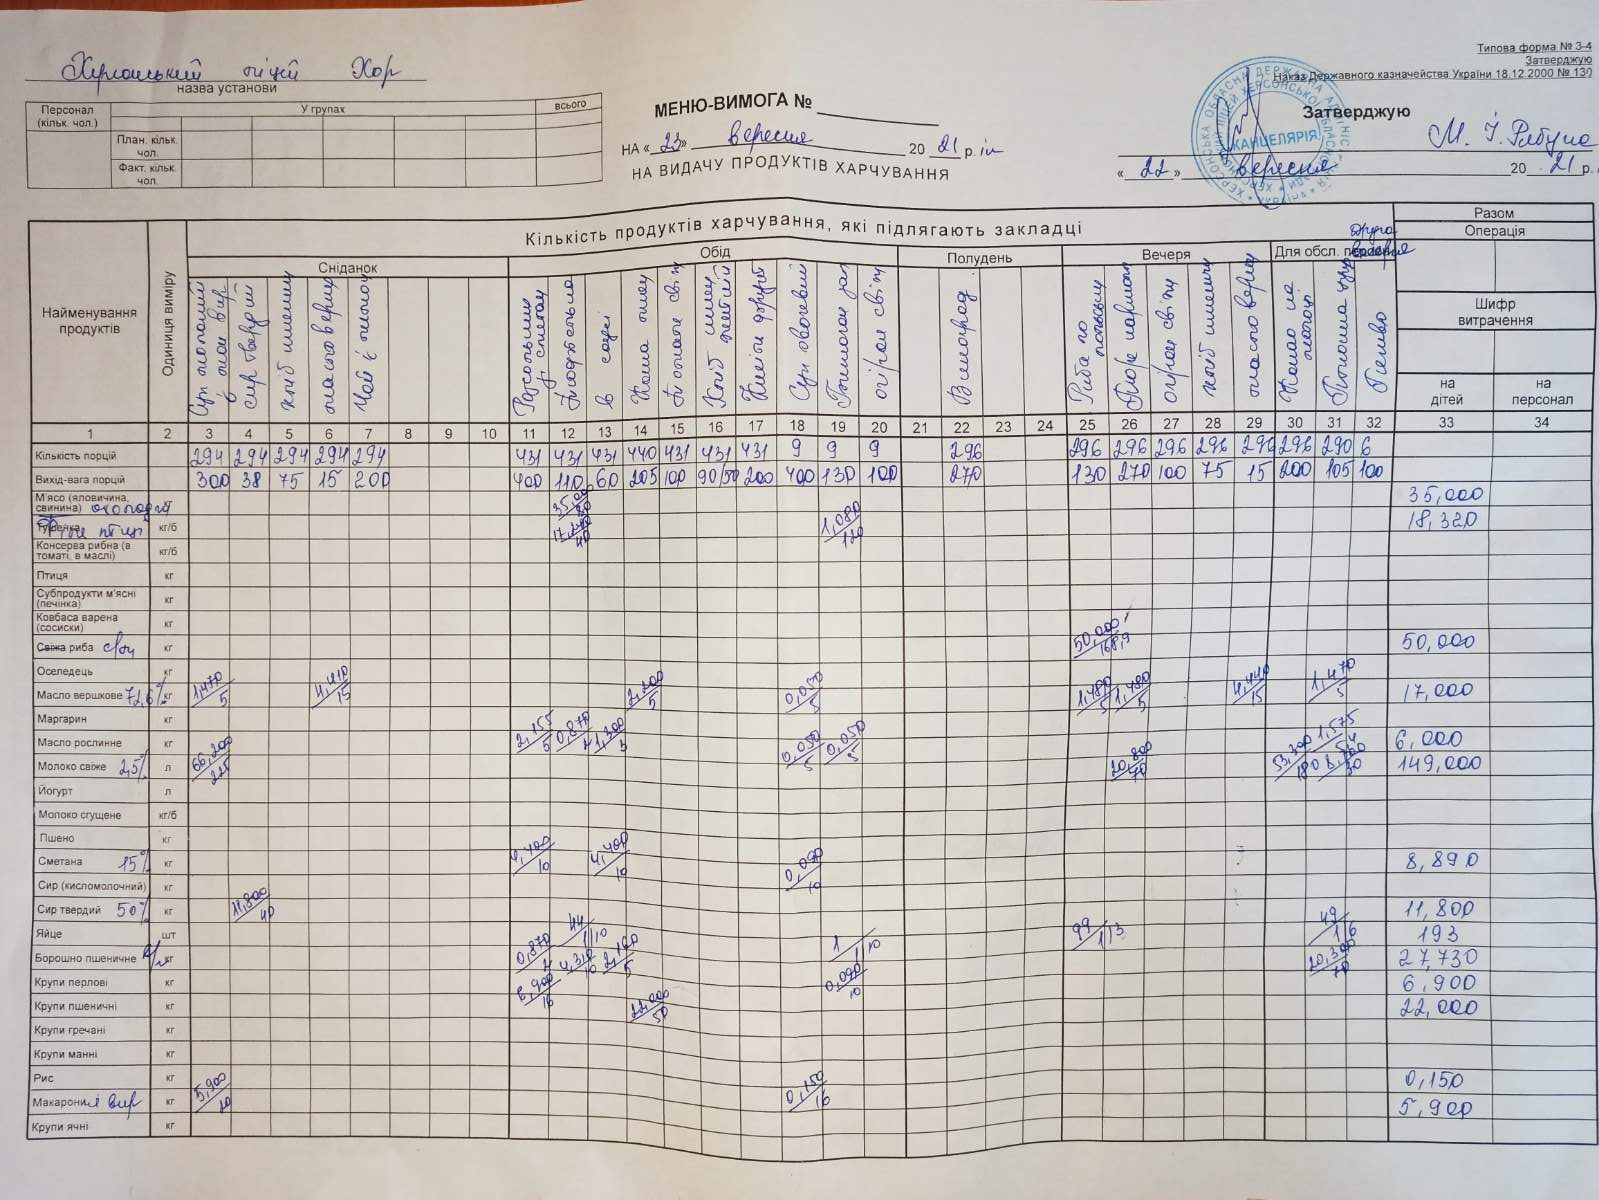 Типова форма № 3-4
Затверджую
Наказ Державного казначейства України 18.12.2000 № 130
Херсонський ліцей ХОР
назва установи
Персонал (кільк. чол.) У групах всього
План. кільк. чол.
Факт. кільк. чол.
МЕНЮ-ВИМОГА №
НА « 23 » вересня 20 21 р.
НА ВИДАЧУ ПРОДУКТІВ ХАРЧУВАННЯ
Затверджую
« 22 » вересня 20 21 р.
КАНЦЕЛЯРІЯ
Найменування продуктів
Одиниця виміру
Кількість продуктів харчування, які підлягають закладці
Разом
Операція
Сніданок Обід Полудень Вечеря Для обсл. персоналу
Друга вечеря
Шифр витрачення
на дітей на персонал
сир твердий
хліб пшенич
масло верш
Виноград
Риба по польськи
хліб пшенич
масло верш
Какао на молоці
Печиво
1 2 3 4 5 6 7 8 9 10 11 12 13 14 15 16 17 18 19 20 21 22 23 24 25 26 27 28 29 30 31 32 33 34
Кількість порцій 294 294 294 294 294 431 431 431 440 431 431 431 9 9 9 296 296 296 296 296 296 296 290 6
Вихід-вага порцій 300 38 75 15 200 400 110 60 205 100 90/50 200 400 130 100 270 130 270 100 75 15 200 105 100
М'ясо (яловичина, свинина) кг 35,000 80 35,000
Тушенка кг/б 40 1,080 120 18,320
Консерва рибна (в томаті, в маслі) кг/б
Птиця кг
Субпродукти м'ясні (печінка) кг
Ковбаса варена (сосиски) кг
Свіжа риба с/м кг 50,000 168,9 50,000
Оселедець кг
Масло вершкове 72,6% кг 1,470 5 4,410 15 2,200 5 0,050 5 1,480 5 1,480 5 4,440 15 1,470 5 17,000
Маргарин кг
Масло рослинне кг 2,155 5 0,870 1,300 3 0,050 5 0,050 5 1,575 6,000
Молоко свіже 2,5% л 66,200 225 20,800 70 53,300 180 30 149,000
Йогурт л
Молоко сгущене кг/б
Пшено кг
Сметана 15% кг 4,400 10 4,400 10 0,090 10 8,890
Сир (кисломолочний) кг
Сир твердий 50% кг 11,800 40 11,800
Яйце шт 44 1/10 1 1/10 99 1/3 49 1/6 193
Борошно пшеничне в/г кг 0,870 4,310 10 2,160 5 0,090 10 20,300 70 27,730
Крупи перлові кг 6,900 16 6,900
Крупи пшеничні кг 22,000 50 22,000
Крупи гречані кг
Крупи манні кг
Рис кг 0,150 16 0,150
Макарони кг 5,900 20 5,900
Крупи ячні кг